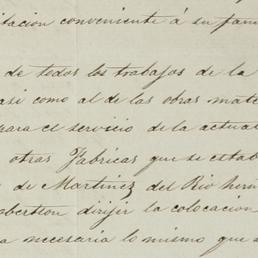 itacion conveniente á su fam
de todos los trabajos de la
asi como al de las obras mate
para el servicio de la actua
otras Fabricas que se estab
de Martinez del Rio herm
obertson dirijir la colocacion
a necesaria lo mismo que